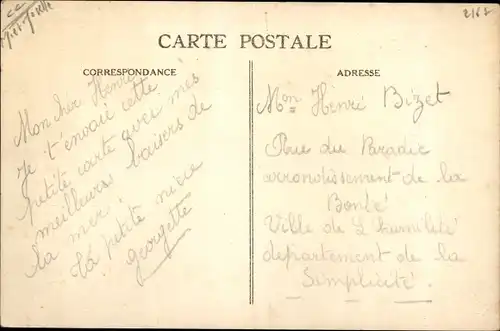 2165
CARTE POSTALE
CORRESPONDANCE
Mon cher Henri
Je t'envoie cette
petite carte avec mes
meilleurs baisers de
la mer.
ta petite nièce
Georgette
ADRESSE
Mon Henri Bizet
Rue du
arrondissement de la
Bonté
Ville de L'humilité
departement de la
Simplicité.